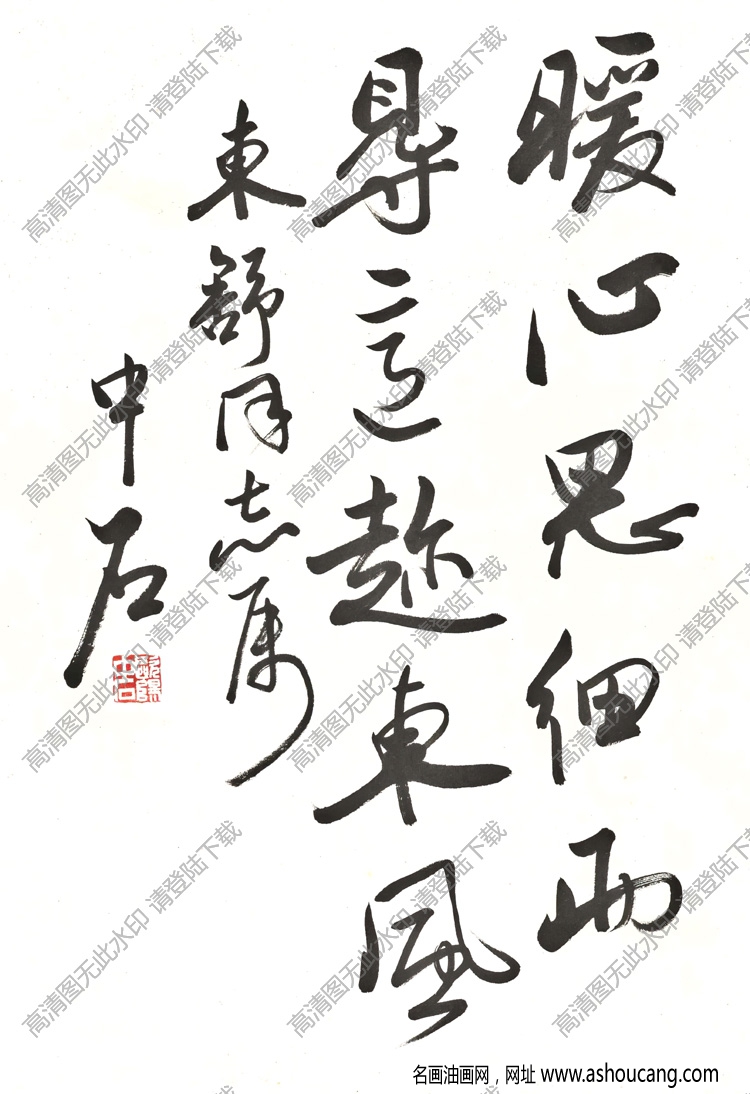 暖心思細雨
㝵意趁東風
東舒同志属
中石
高清图无此水印 请登陆下载
名画油画网，网址 www.ashoucang.com